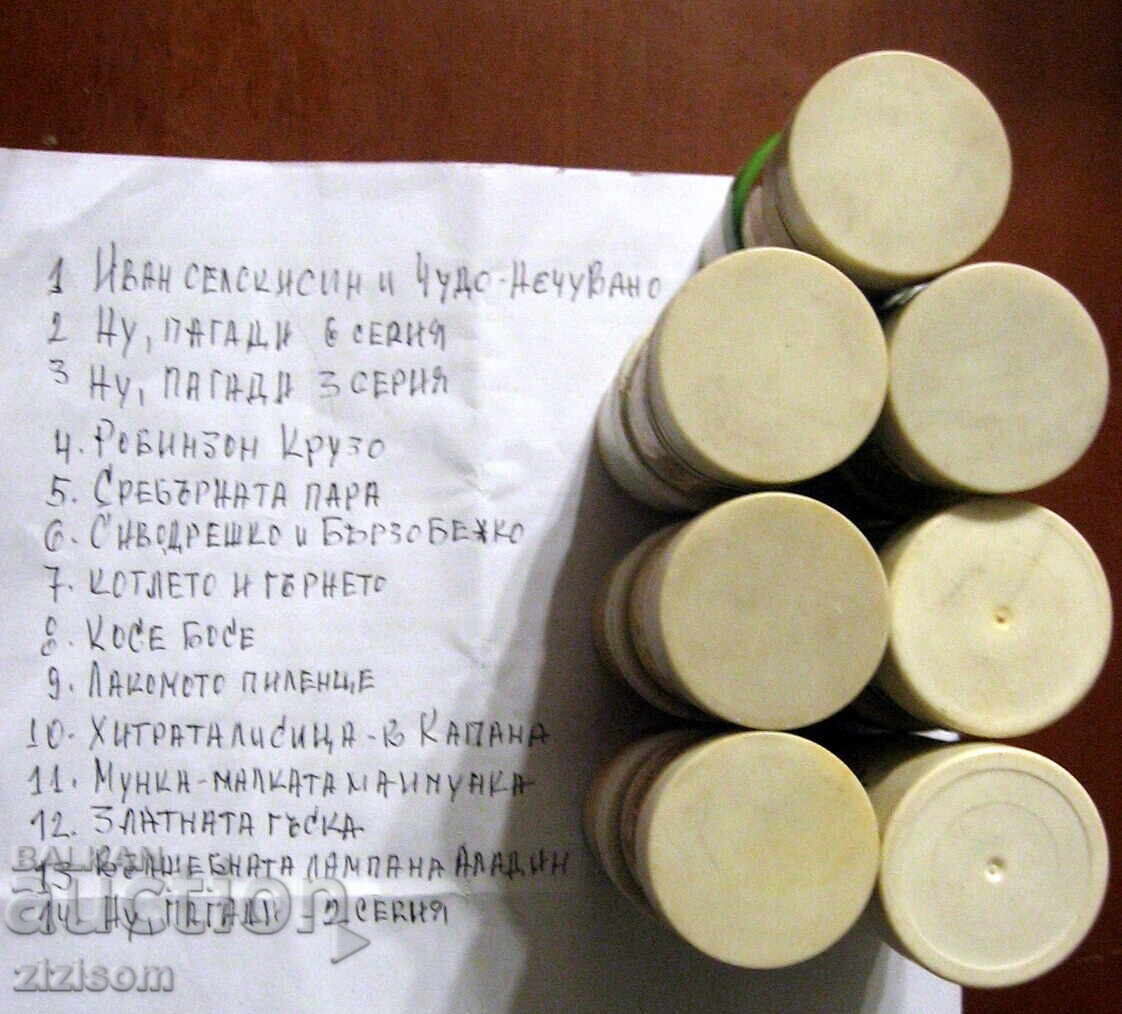 1 Иван селски син и Чудо-нечувано
2 Ну, пагади 6 серия
3 Ну, пагади 3 серия
4. Робинзон Крузо
5. Сребърната пара
6. Сиводрешко и Бързобежко
7. котлето и гърнето
8. Косе Босе
9. Лакомото пиленце
10. Хитрата лисица - в Капана
11. Мунка-малката маимунка
12. Златната гъска
13 Вълшебната лампа на Аладин
14. Ну, пагади - 2 серия
BALKAN
auction
zizisom